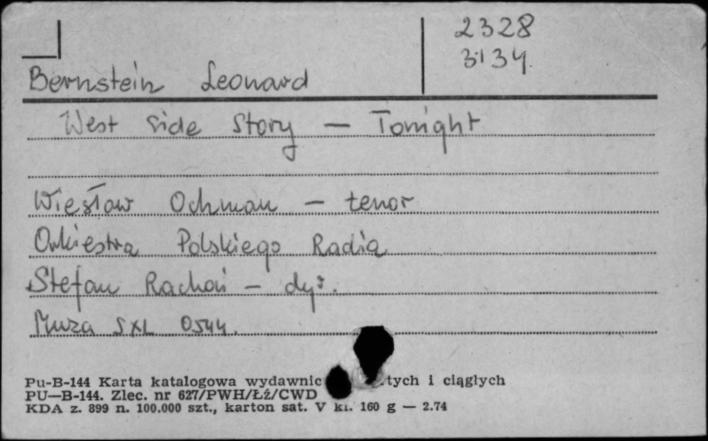 2328
3134
Bernstein Leonard
West Side Story — Tonight
Wiesław Ochman — tenor
Orkiestra Polskiego Radia
Stefan Rachoń — dyr.
Muza SXL 0544.
Pu-B-144 Karta katalogowa wydawnic i ciągłych
PU—B-144. Zlec. nr 627/PWH/Łź/CWD
KDA z. 899 n. 100.000 szt., karton sat. V kl. 160 g — 2.74